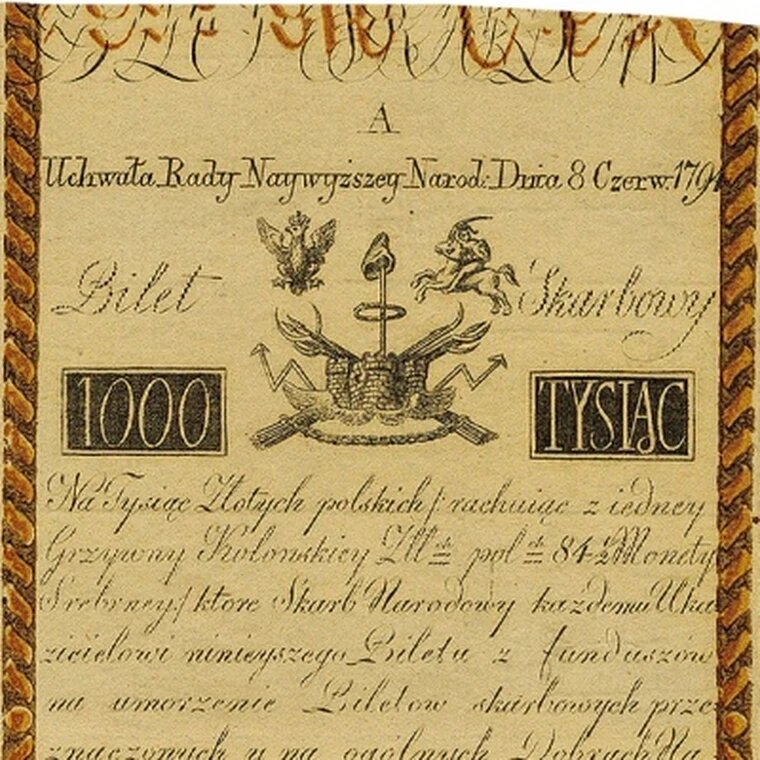 A
Uchwała Rady Naywyższey Narod: Dnia 8 Czerw: 179
Bilet Skarbowy
1000 TYSIĄC
Na Tysiąc Złotych polskich /: rachuiąc z iedney
Grzywny Kolonskiey Złł. pol. 84 Monety
Srebrney:/ ktore Skarb Narodowy każdemu Uka
zicielowi ninieyszego Biletu z funduszów
na umorzenie Biletow skarbowych prze
znaczonych y na ogólnych Dobrach Na